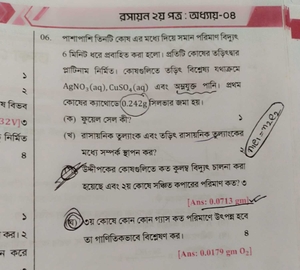 রসায়ন ২য় পত্র : অধ্যায়-০৪
06. পাশাপাশি তিনটি কোষ এর মধ্যে দিয়ে সমান পরিমাণ বিদ্যুৎ
6 মিনিট ধরে প্রবাহিত করা হলো। প্রতিটি কোষের তড়িৎদ্বার
প্লাটিনাম নির্মিত। কোষগুলিতে তড়িৎ বিশ্লেষ্য যথাক্রমে
AgNO₃ (aq), CuSO₄ (aq) এবং অম্লযুক্ত পানি। প্রথম
কোষের ক্যাথোডে 0.242g সিলভার জমা হয়।
(ক) ফুয়েল সেল কী? ১
(খ) রাসায়নিক তুল্যাংক এবং তড়িৎ রাসায়নিক তুল্যাংকের
মধ্যে সম্পর্ক স্থাপন কর? ২
উদ্দীপকের কোষগুলিতে কত কুলম্ব বিদ্যুৎ চালনা করা
হয়েছে এবং ২য় কোষে সঞ্চিত কপারের পরিমাণ কত? ৩
[Ans: 0.0713 gm]
(ঘ) ৩য় কোষে কোন কোন গ্যাস কত পরিমাণে উৎপন্ন হবে
তা গাণিতিকভাবে বিশ্লেষণ কর। ৪
[Ans: 0.0179 gm O₂]
১
২
ষ বিভব
32V]৩
নির্মিত
৪
১
কর। ২
ন করে
n₁e₁ = n₂e₂